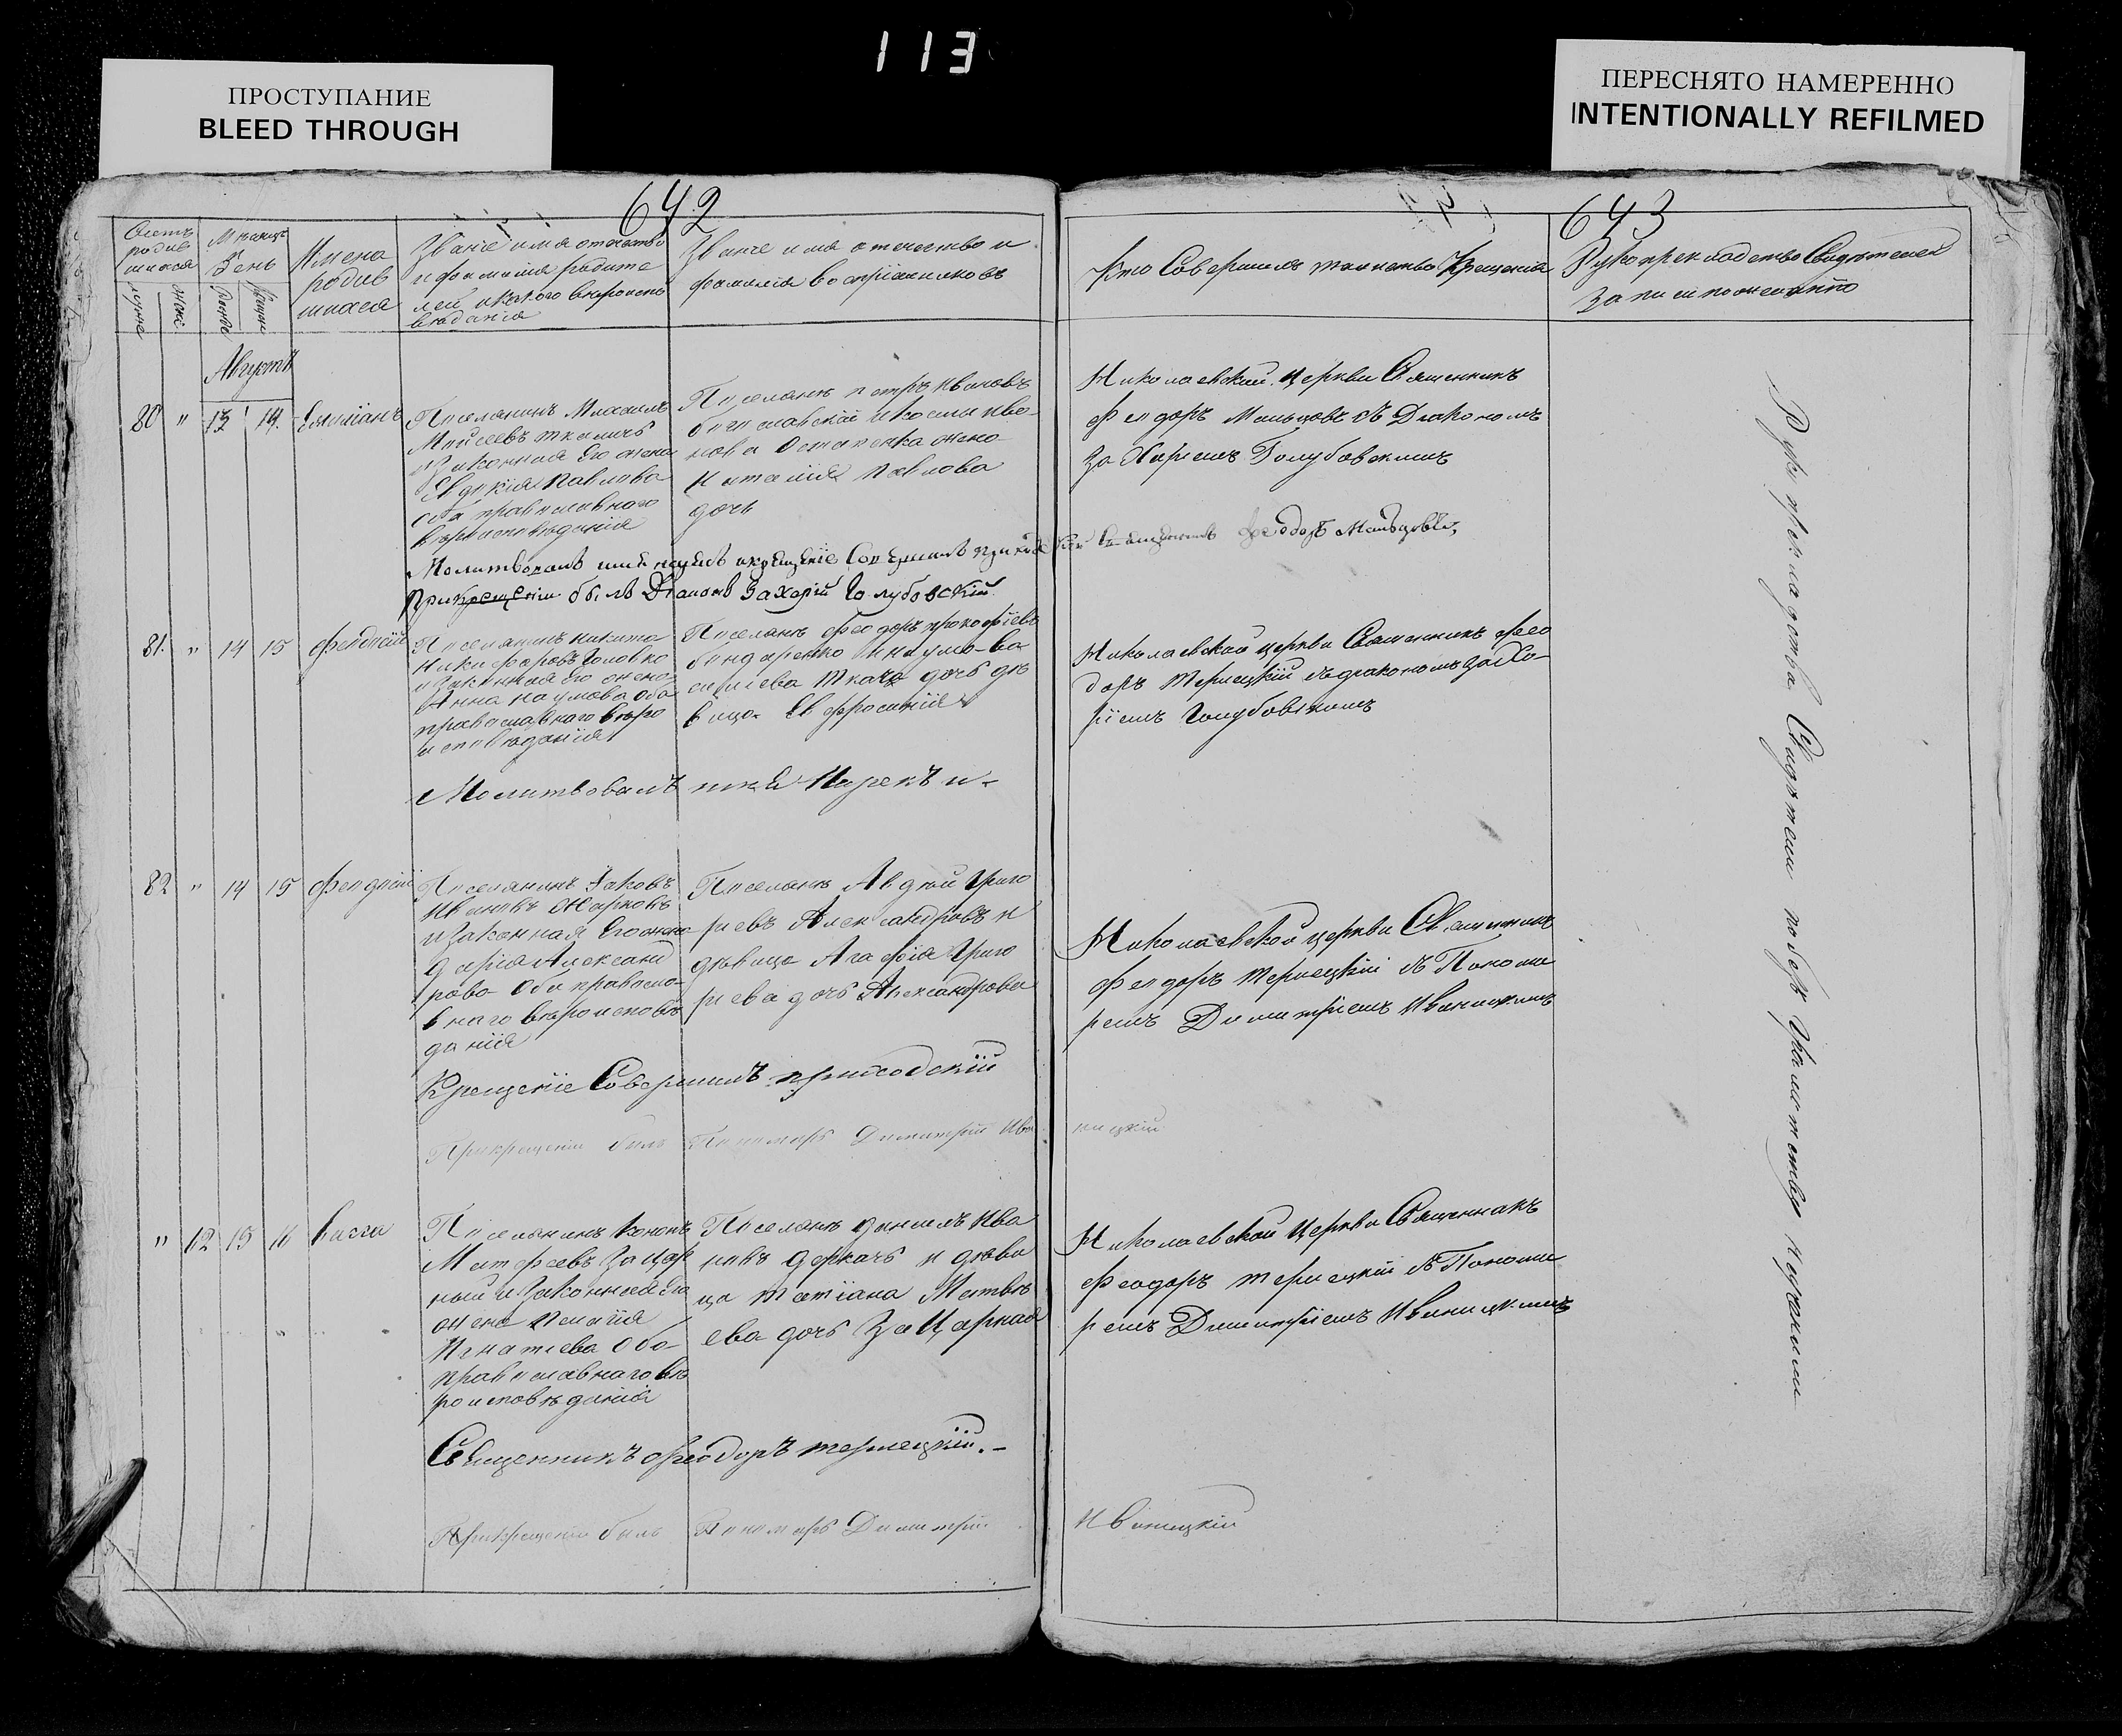 113
ПРОСТУПАНИЕ
BLEED THROUGH
ПЕРЕСНЯТО НАМЕРЕННО
INTENTIONALLY REFILMED
642
Счетъ
родив
шихся
Мѣсяцъ
День
Имена
родив
шихся
Званіе имя отчество
и фамилія родите
лей и какого вѣроиспо
вѣданія
Званіе имя отечество и
фамилія воспріемниковъ
Августъ
80 " 13 14. Емиліанъ
Поселянинъ Михаилъ
Мойсеевъ Ткаличъ
и Законная Его жена
Евдокія Павлова
оба православного
вѣроисповѣданія
Поселянъ Петръ Ивановъ
Ива
нова Остапенка жена
Наталія Павлова
дочь
Молитвовалъ имя нарекъ и крещеніе Совершилъ
При крещеніи былъ Діаконъ Захарій Голубовскій.
81. " 14 15 Феодосій
Поселянинъ Никита
Никифоровъ Головко
и Законная Его жена
Анна Наумова оба
православного вѣро
исповѣданія
Поселянъ Феодоръ Прокофіевъ
Бондаренко и Наумо Ва
силіева Ткача дочь дѣ
вица Евфросинія
Молитвовалъ имя Нарекъ и-
82 " 14 15 Феодосій
Поселянинъ Іаковъ
Ивановъ Жарковъ
и Законная Его жена
Дарія Александ
рова Оба православ
внаго вѣроисповѣ
данія
Поселянъ Авдѣй Григо
ріевъ Александровъ и
дѣвица Агафія Григо
ріева дочь Александрова
Крещеніе Совершилъ приходскій
При крещеніи былъ Пономарь Димитрій Ива
ницкій
" 62 15 16 Васса
Поселянинъ Кононъ
Матфеевъ Зацар
ный и Законная Его
жена Пелагія
Игнатіева Оба
православнаго вѣ
роисповѣданія
Поселянъ Даніилъ Ива
новъ Деркачъ и дѣви
ца Татіана Матвѣ
ева дочь Зацарная
Священникъ Феодоръ Терлецкій.-
При крещеніи былъ Пономарь Димитрій
Иваницкій
643
Кто Совершилъ таинство Крещенія
Рукоприкладство Свидѣтелей
записи по желанію
Николаевской Церкви Священникъ
Феодоръ Мальцовъ съ Діакономъ
Захаріемъ Голубовскимъ
Священникъ Феодоръ Мальцовъ
Николаевской Церкви Священникъ Фео
доръ Терлецкій съ діакономъ Заха
ріемъ Голубовскимъ
Николаевской церкви Священникъ
Феодоръ Терлецкій съ Понома
ремъ Димитріемъ Иваницкимъ
Николаевской Церкви Священникъ
Феодоръ Терлецкій съ Понома
ремъ Димитріемъ Иваницкимъ
Рукоприкладства Свидѣтели по безграмотству